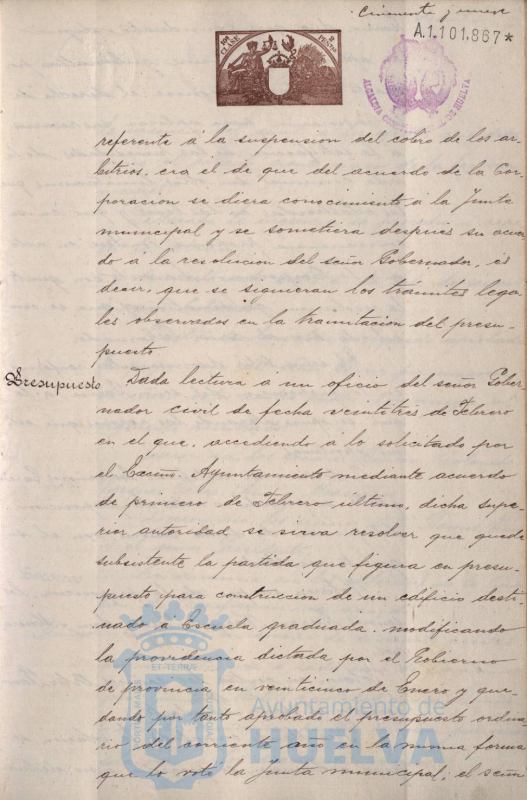 Cincuenta y nueve
A.1.101.867*
10ª CLASE
2 PESETAS
ALCALDIA CONSTITUCIONAL DE HUELVA
referente á la suspension del cobro de los ar-
bitrios, era el de que del acuerdo de la Cor-
poracion se diera conocimiento á la Junta
municipal y se sometiera despues su acuer-
do á la resolucion del señor Gobernador, es
decir, que se siguieran los trámites lega-
les observados en la tramitacion del presu-
puesto.
Presupuesto
Dada lectura á un oficio del señor Gober-
nador civil de fecha veintitres de Febrero
en el que, accediendo á lo solicitado por
el Excmo. Ayuntamiento mediante acuerdo
de primero de Febrero último, dicha supe-
rior autoridad se sirva resolver que quede
subsistente la partida que figura en presu-
puesto para construccion de un edificio desti-
nado a Escuela graduada, modificando
la providencia dictada por el Gobierno
de provincia en veinticinco de Enero y que-
dando por tanto aprobado el presupuesto ordina-
rio del corriente año en la misma forma
que lo votó la Junta municipal; el señor
Ayuntamiento de
HUELVA